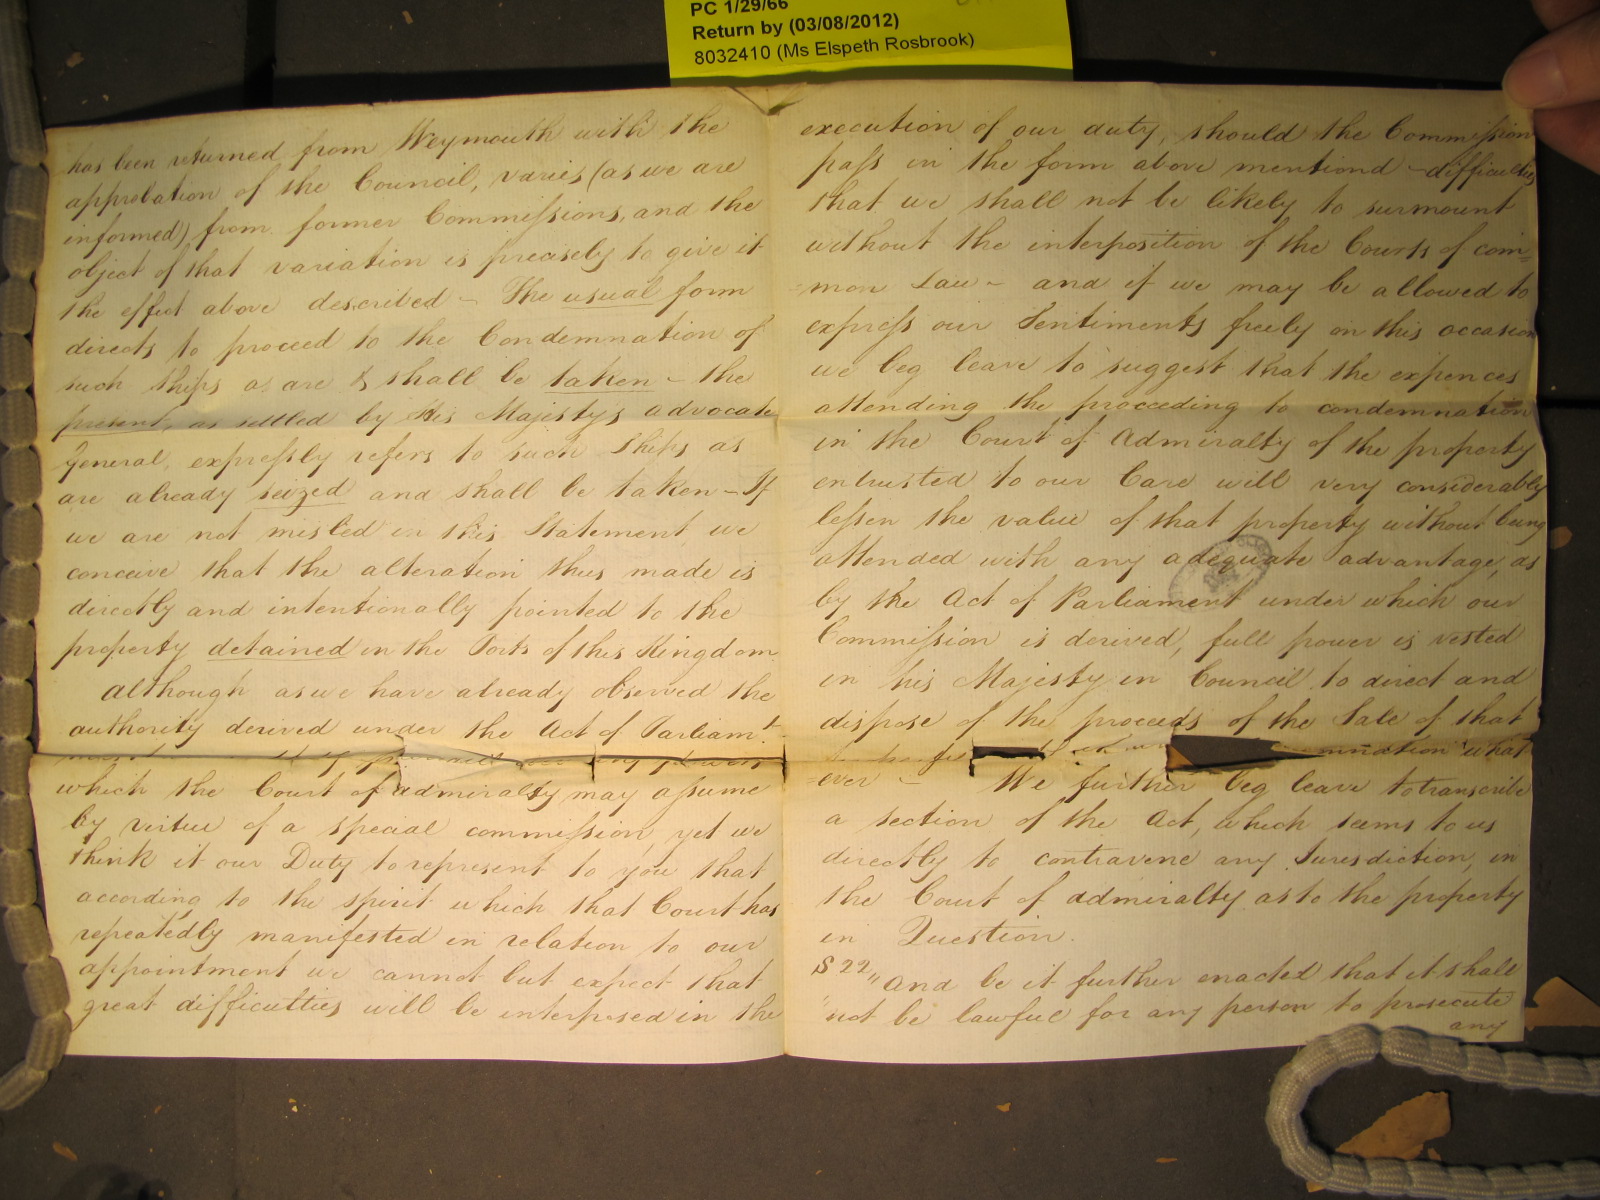 PC 1/29/66
Return by (03/08/2012)
8032410 (Ms Elspeth Rosbrook)
has been returned from Weymouth with the
approbation of the Council, varies (as we are
informed) from former Commissions, and the
object of that variation is precisely to give it
the effect above described – The usual form
directs to proceed to the Condemnation of
such ships as are & shall be taken – the
present, as settled by His Majestys advocate
general, expressly refers to such Ships as
are already seized and shall be taken – If
we are not misled in this Statement, we
conceive that the alteration thus made is
directly and intentionally pointed to the
property detained in the Ports of this Kingdom
Although as we have already observed the
authority derived under the Act of Parliamt.
which the Court of admiralty may assume
by virtue of a special commission, yet we
think it our Duty to represent to you that
according to the spirit which that Court has
repeatedly manifested in relation to our
appointment we cannot but expect that
great difficultties will be interposed in the
execution of our duty, should the Commission
pass in the form above mentiond – difficulties
that we shall not be likely to surmount
without the interposition of the Courts of com=
=mon Law – and if we may be allowed to
express our Sentiments freely on this occasion
we beg leave to suggest that the expences
attending the proceeding to condemnation
in the Court of Admiralty of the property
entrusted to our Care will very considerably
lessen the value of that property without being
attended with any adequate advantage, as
by the Act of Parliament under which our
Commission is derived, full power is vested
in his Majesty in Council to direct and
dispose of the proceeds of the Sale of that
what
=ever – We further beg leave to transcribe
a section of the Act, which seems to us
directly to contravene any Jurisdiction, in
the Court of admiralty as to the property
in Question.
S 22 " And be it further enacted that it shall
" not be lawful for any person to prosecute
any